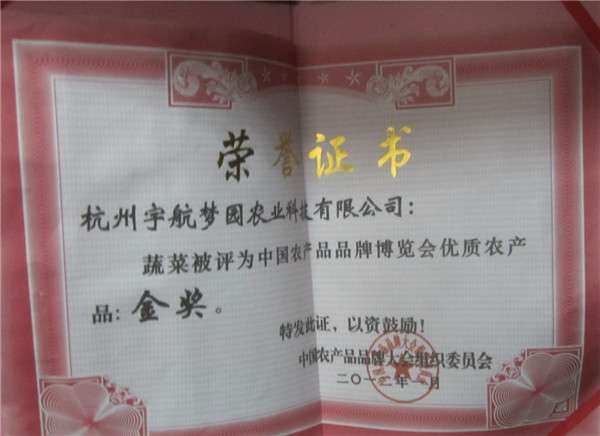 荣誉证书
杭州宇航梦园农业科技有限公司:
蔬菜被评为中国农产品品牌博览会优质农产
品:金奖。
特发此证,以资鼓励!
中国农产品品牌大会组织委员会
二〇一二年一月